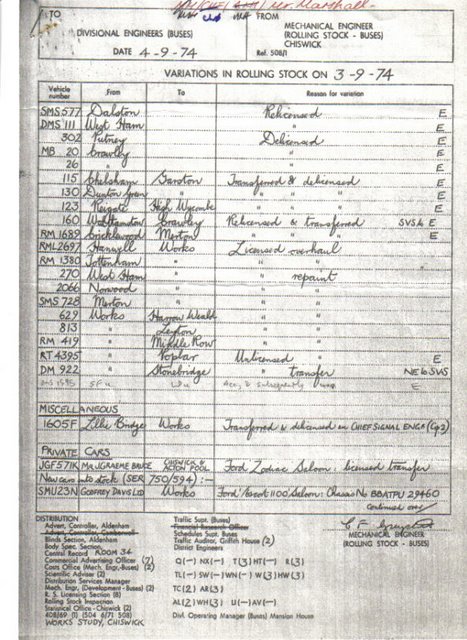 Mr. Marshall.
TO
FROM
DIVISIONAL ENGINEERS (BUSES)
MECHANICAL ENGINEER
(ROLLING STOCK - BUSES)
CHISWICK
DATE 4-9-74
Ref. 508/1
VARIATIONS IN ROLLING STOCK ON 3-9-74
Vehicle number From To Reason for variation
SMS 577 Dalston Relicensed E
DMS 111 West Ham " E
302 Putney Delicensed E
MB 20 Crawley " E
26 " " E
115 Chelsham Garston Transferred & delicensed E
130 Dunton Green " " " E
123 Reigate High Wycombe " " E
160 Walthamstow Crawley Relicensed & transferred SVS & E
RM 1689 Cricklewood Merton " " E
RML 2697 Hanwell Works Licensed overhaul
RM 1380 Tottenham " " "
270 West Ham " " repaint
2066 Norwood " " "
SMS 728 Merton " " "
629 Works Harrow Weald " "
813 " Leyton " "
RM 419 " Middle Row " "
RT 4395 " Poplar Unlicensed E
DM 922 " Stonebridge " transfer NE to SVS
MISCELLANEOUS
1605F Lillie Bridge Works Transferred & delicensed ex CHIEF SIGNAL ENGR (Gp 2)
PRIVATE CARS
JGF571K MR. J GRAEME BRUCE CHISWICK & ACTON POOL Ford Zodiac Saloon: licensed transfer
New cars into stock (SER 750/594) :—
SMU23N GODFREY DAVIS LTD Works Ford Escort 1100 Saloon: Chassis No BBATPU 29460
continued over
DISTRIBUTION
Advert. Controller, Aldenham
Blinds Section, Aldenham
Body Spec. Section
Central Record ROOM 34
Commercial Advertising Officer (2)
Costs Office (Mech. Engr. Buses) (2)
Scientific Adviser (2)
Distribution Services Manager
Mech. Engr. (Development - Buses) (2)
R. S. Licensing Section (8)
Rolling Stock Inspection
Statistical Office - Chiswick (2)
408/69 (1) 504 6/71 508)
WORKS STUDY, CHISWICK
Traffic Supt. (Buses)
Financial Research Officer
Schedules Supt. Buses
Traffic Auditor, Griffith House (2)
District Engineers
Q(—) NX(—) T(3) HT(—) R(3)
TL(—) SW(—) WN(—) W(3) HW(3)
TC(2) AR(3)
AL(2) WH(3) U(—) AV(—)
Divl. Operating Manager (Buses) Mansion House
MECHANICAL ENGINEER
(ROLLING STOCK - BUSES)